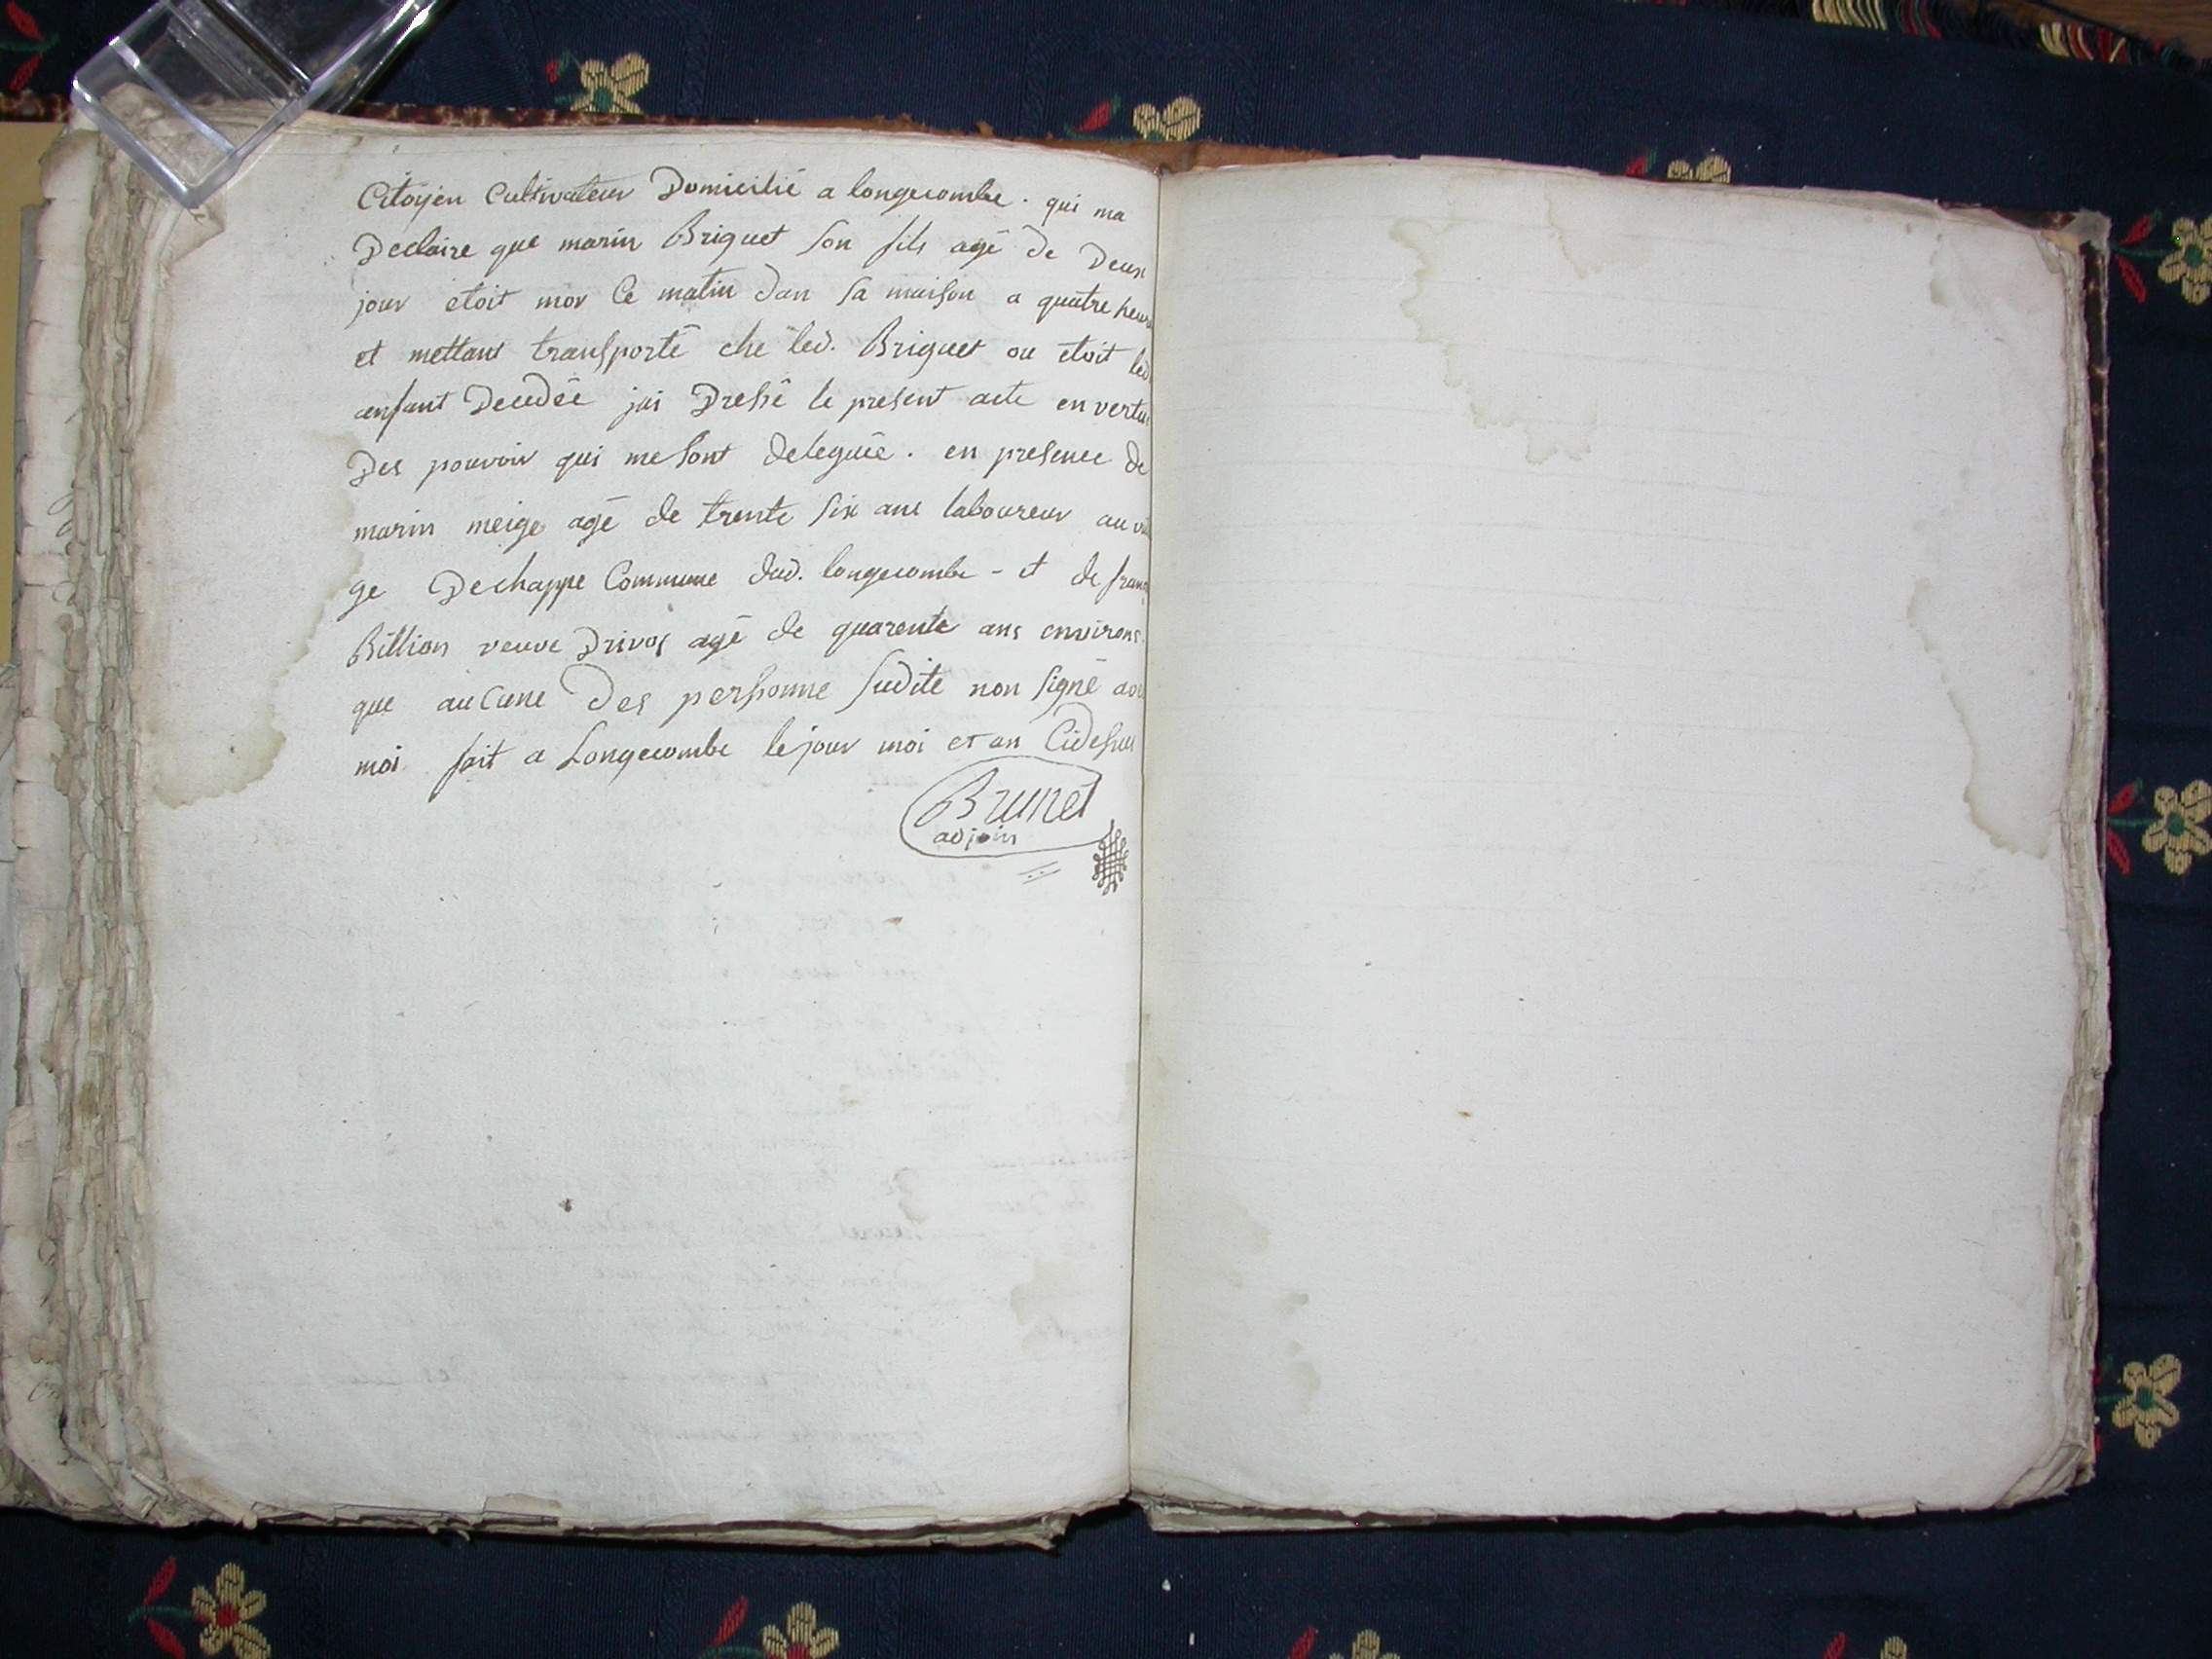 Citoyen Cultivateur Domicilié a longecombe . qui ma
Declaire que marin Briquet son fils agé de Deux
jour etoit mor Ce matin dan sa maison a quatre heur
et mettant transporté che led. Briquet ou etoit led
anfant Decedée jai Dressé le present acte en vertu
Des pouvoir qui me sont deleguée . en presence de
marin meige agé de trente six ans laboureur au vil
ge De chappe Commune dud. longecombe - et de franc
Billion veuve agé de quarente ans environs
que aucune des personne sudite non signé
moi fait a Longecombe le jour moi et an Cidessus
Brunet
adjoin